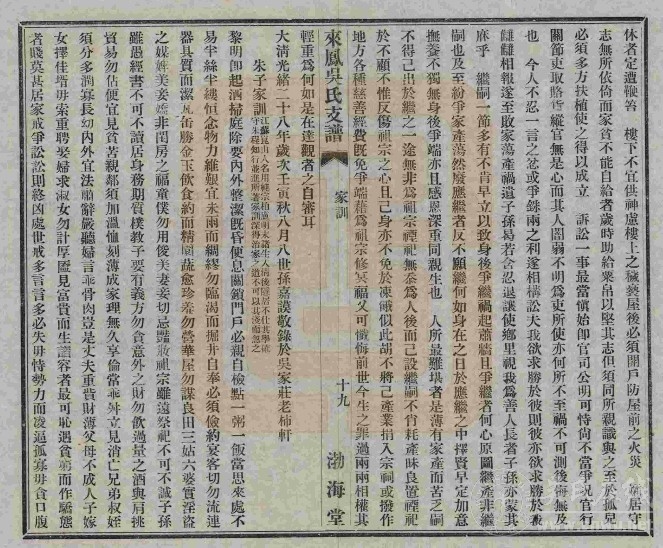 休者定遭鞭笞　樓下不宜供神慮樓上之穢褻屋後必須開戶防屋前之火災　孀居守
志無所依倚而家貧不能自給者歲時助給粟帛以堅其志但須同所親識與之至於孤兒
必須多方扶植使之得以成立　訴訟一事最當慎始即官司公明可恃尚不當爭況官行
關節吏取賂賄縱官無是心而其人闇弱不明為吏所使亦何所不至禍不可測後悔無及
也　今人不忍一言之忿或爭錙兩之利遂相搆訟夫我欲求勝於彼則彼亦欲求勝於我
讎讎相報遂至敗家蕩產禍遺子孫曷若含忍退讓使鄉里視我為善人長者子孫亦蒙其
庥乎　繼嗣一節多有不肯早立以致身後爭繼禍起蕭牆且爭繼者何心原圖繼產非繼
嗣也及至紛爭家產蕩然廢應繼者反不願繼何如身在之日於應繼之中擇賢早定加意
撫養不獨無身後爭端亦且感恩深重同親生也　人所最難堪者是薄有家產而苦乏嗣
不得已出於繼之一途無非為祖宗禋祀無忝為人後而已設繼嗣不肖耗產昧良置禋祀
於不顧不惟反傷祖宗之心且己身亦不免於凍餓似此胡不將己產業捐入宗祠或撥作
地方各種慈善經費既免爭端藉為祖宗修冥福又可懺悔前世今生之罪過兩兩相權其
輕重為何如是在達觀者之自審耳
大清光緒二十八年歲次壬寅秋八月八世孫嘉謨敬錄於吳家莊老柿軒
來鳳吳氏支譜
家訓
十九
渤海堂
朱子家訓
黎明即起洒掃庭除要內外整潔既昏便息關鎖門戶必親自檢點一粥一飯當思來處不
易半絲半縷恒念物力維艱宜未雨而綢繆勿臨渴而掘井自奉必須儉約宴客切勿流連
器具質而潔瓦缶勝金玉飲食約而精園蔬愈珍羞勿營華屋勿謀良田三姑六婆實淫盜
之媒婢美妾嬌非閨房之福童僕勿用俊美妻妾切忌豔妝祖宗雖遠祭祀不可不誠子孫
雖愚經書不可不讀居身務期質樸教子要有義方勿貪意外之財勿飲過量之酒與肩挑
貿易勿佔便宜見貧苦親鄰須加溫恤刻薄成家理無久享倫常乖舛立見消亡兄弟叔姪
須分多潤寡長幼內外宜法肅辭嚴聽婦言乖骨肉豈是丈夫重貲財薄父母不成人子嫁
女擇佳壻毋索重聘娶婦求淑女勿計厚匳見富貴而生諂容者最可恥遇貧窮而作驕態
者賤莫甚居家戒爭訟訟則終凶處世戒多言言多必失毋恃勢力而凌逼孤寡毋貪口腹